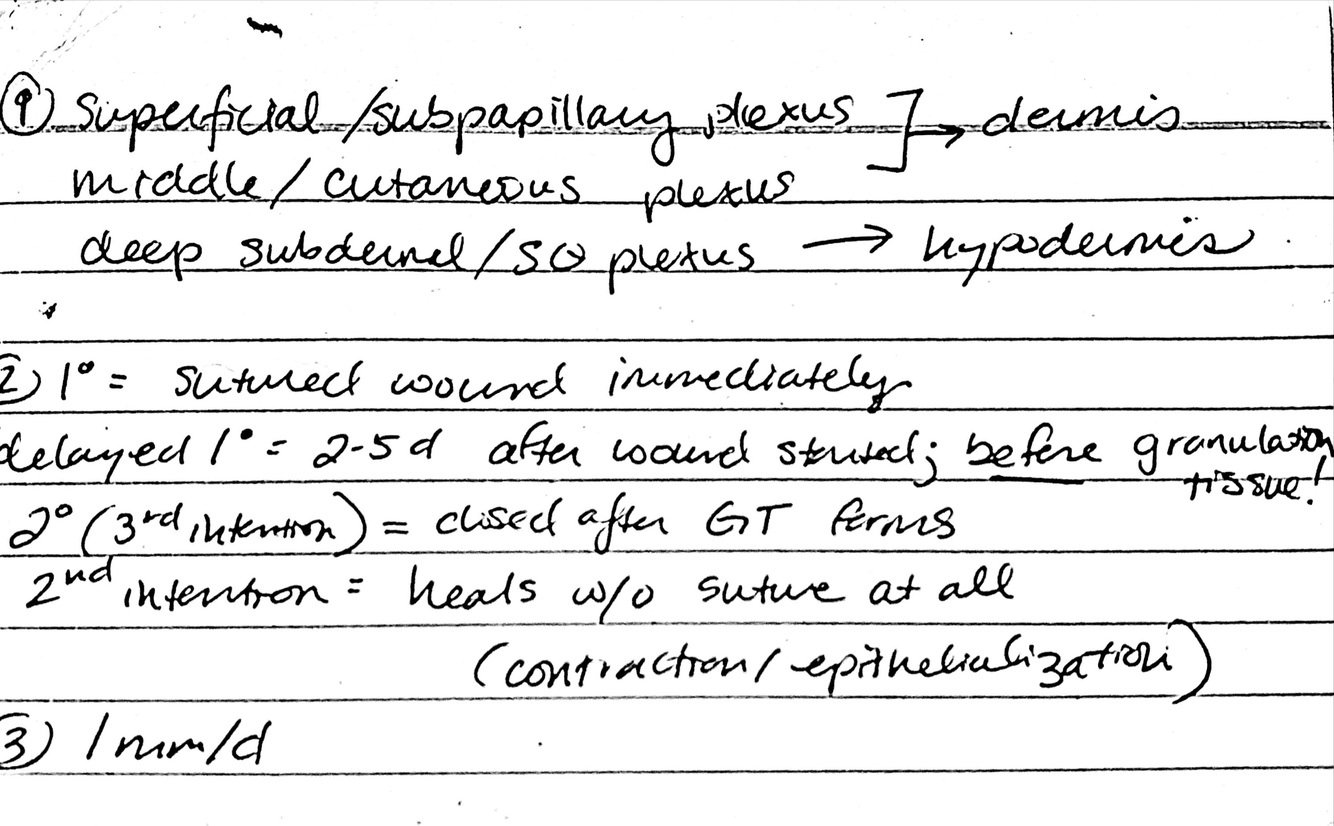 ① superficial/subpapillary plexus ] → dermis
middle/cutaneous plexus
deep subdermal/SQ plexus → hypodermis
② 1° = sutured wound immediately
delayed 1° = 2-5 d after wound started; before granulation
tissue!
2° (3rd intention) = closed after GT forms
2nd intention = heals w/o suture at all
(contraction/epithelialization)
③ 1 mm/d